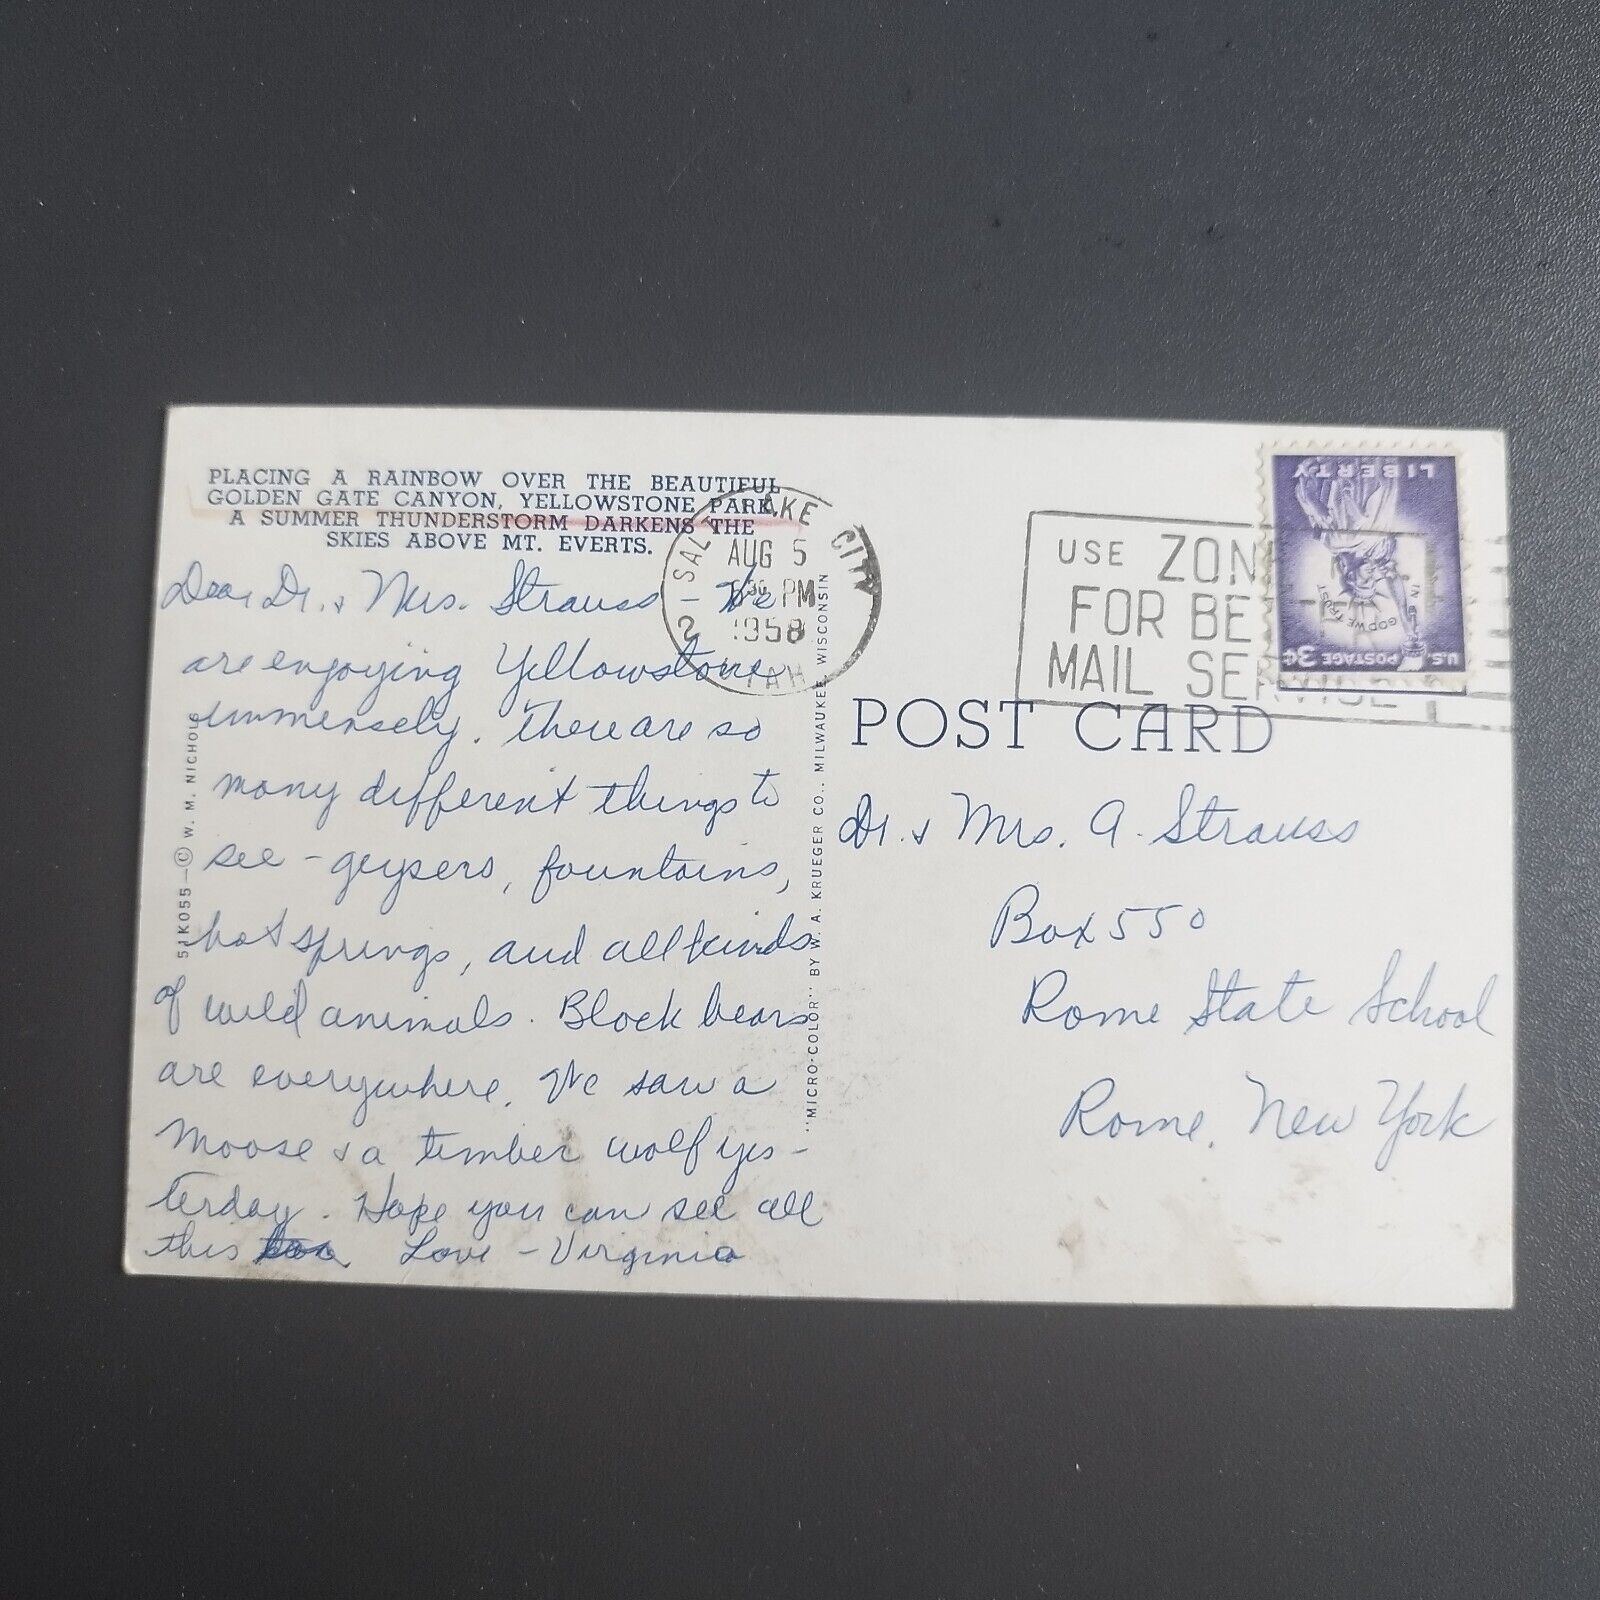 PLACING A RAINBOW OVER THE BEAUTIFUL
GOLDEN GATE CANYON, YELLOWSTONE PARK,
A SUMMER THUNDERSTORM DARKENS THE
SKIES ABOVE MT. EVERTS.
Dear Dr. & Mrs. Strauss - We
are enjoying Yellowstone
immensely. There are so
many different things to
see - geysers, fountains,
hot springs, and all kinds
of wild animals. Black bears
are everywhere. We saw a
Moose & a timber wolf yes-
terday. Hope you can see all
this Love - Virginia
51K055-© W. M. NICHOLS
"MICRO-COLOR" BY W. A. KRUEGER CO., MILWAUKEE, WISCONSIN
SALT LAKE CITY
AUG 5
PM
1958
2 UTAH
USE ZON
FOR BETTER
MAIL SERVICE
LIBERTY
IN GOD WE TRUST
U.S. POSTAGE 3¢
POST CARD
Dr. & Mrs. A. Strauss
Box 550
Rome State School
Rome, New York